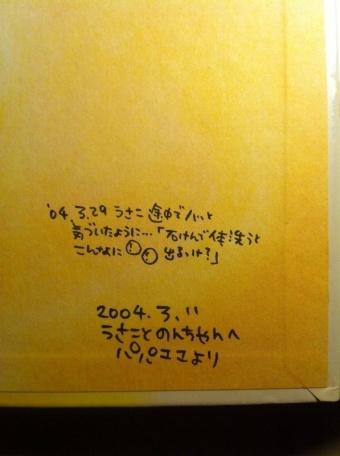 '04.3.29 うさこ 途中でハッと
気づいたように…「石けんで体洗うと
こんなに 出るっけ？」
2004.3.11
うさことのんちゃんへ
パパママより